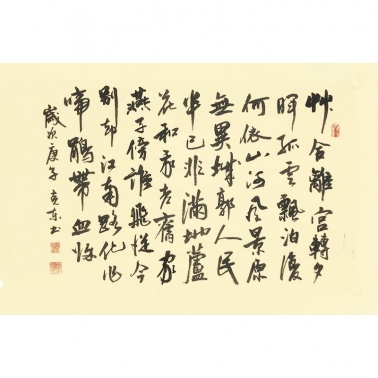 艸合離宮轉夕
暉孤雲飄泊復
何依山河風景原
無異城郭人民
半已非滿地蘆
花和我老舊家
燕子傍誰飛從今
別却江南路化作
啼鵑帶血歸
歲次庚子 书